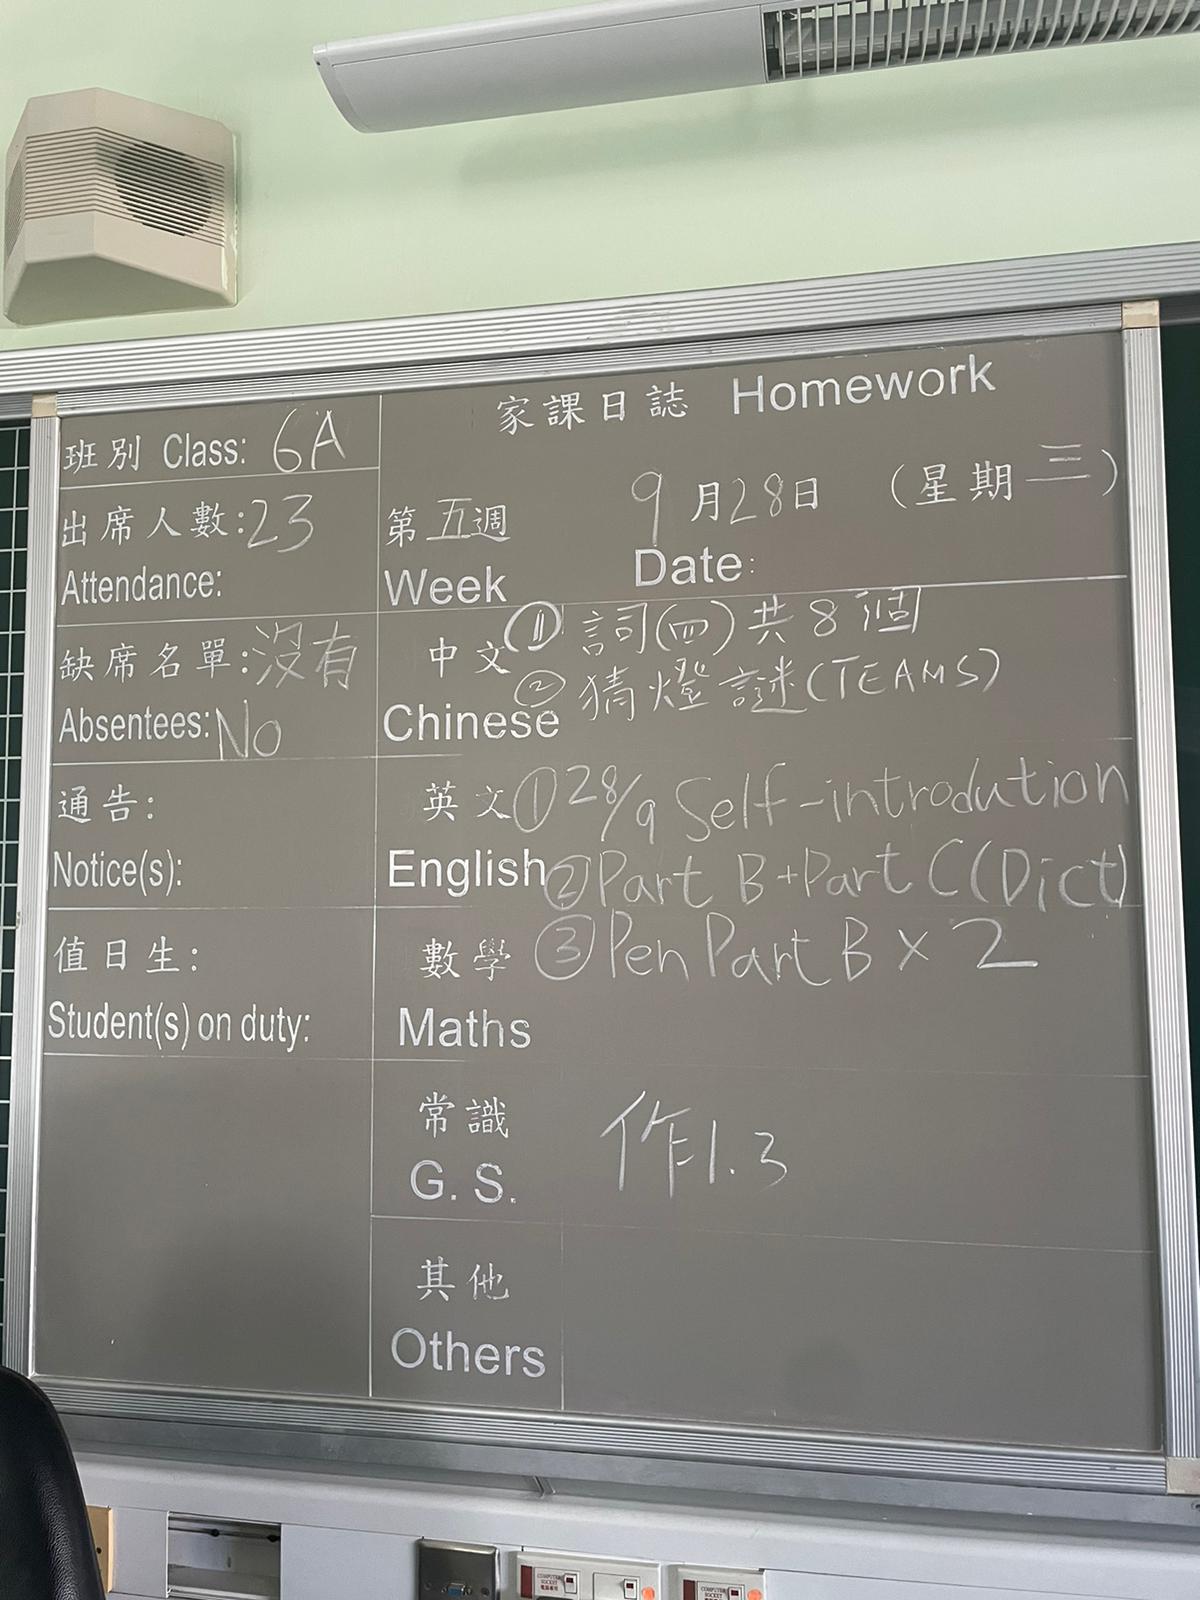 家課日誌 Homework
班別 Class: 6A
出席人數:23
Attendance:
第五週 9月28日 (星期三)
Week Date:
缺席名單:沒有
Absentees: No
中文 ① 詞(四)共8個
Chinese ② 猜燈謎(TEAMS)
通告:
Notice(s):
英文 ① 28/9 Self-introdution
English ② Part B+Part C(Dict)
值日生:
Student(s) on duty:
數學 ③ Pen Part B × 2
Maths
常識 作1.3
G. S.
其他
Others
COMPUTER SOCKET
COMPUTER SOCKET